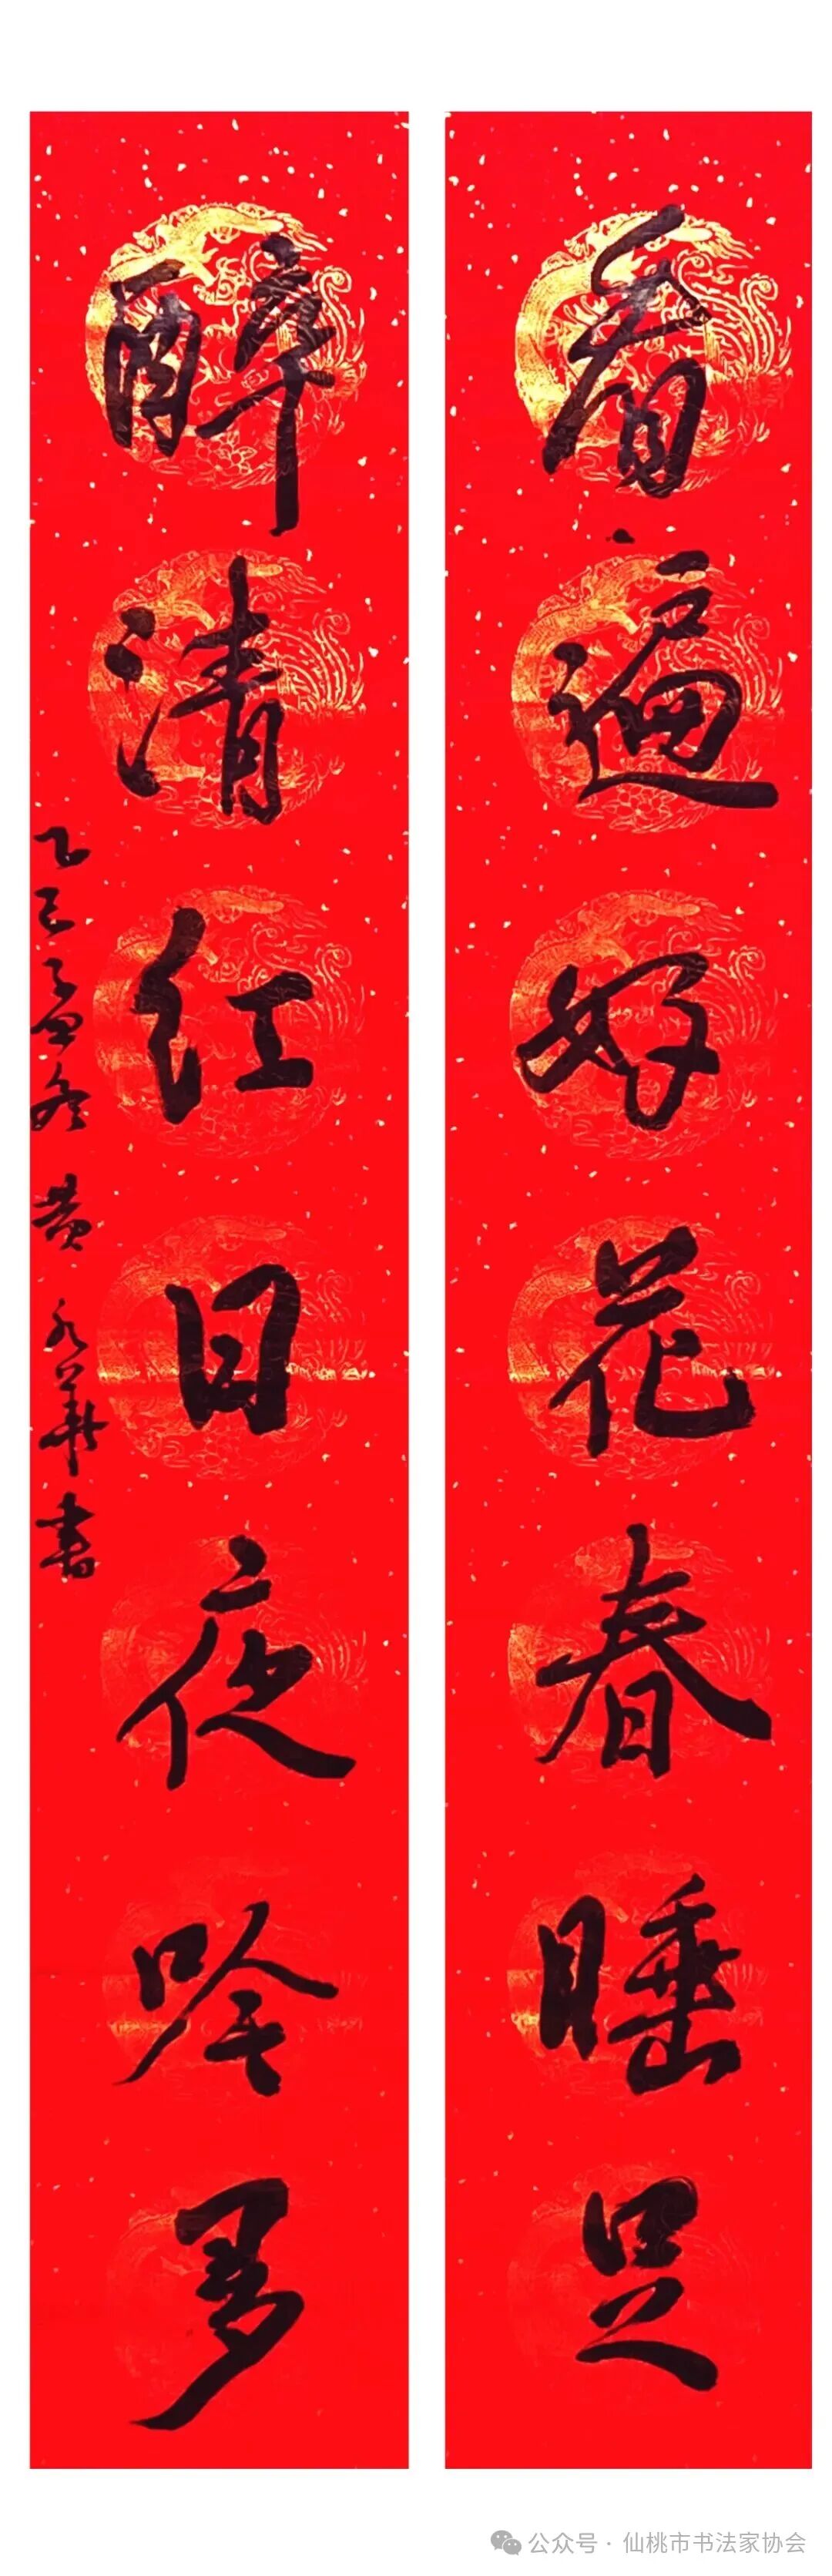 看遍好花春睡足
醉清红日夜吟多
乙巳孟冬 黄永华书
公众号·仙桃市书法家协会